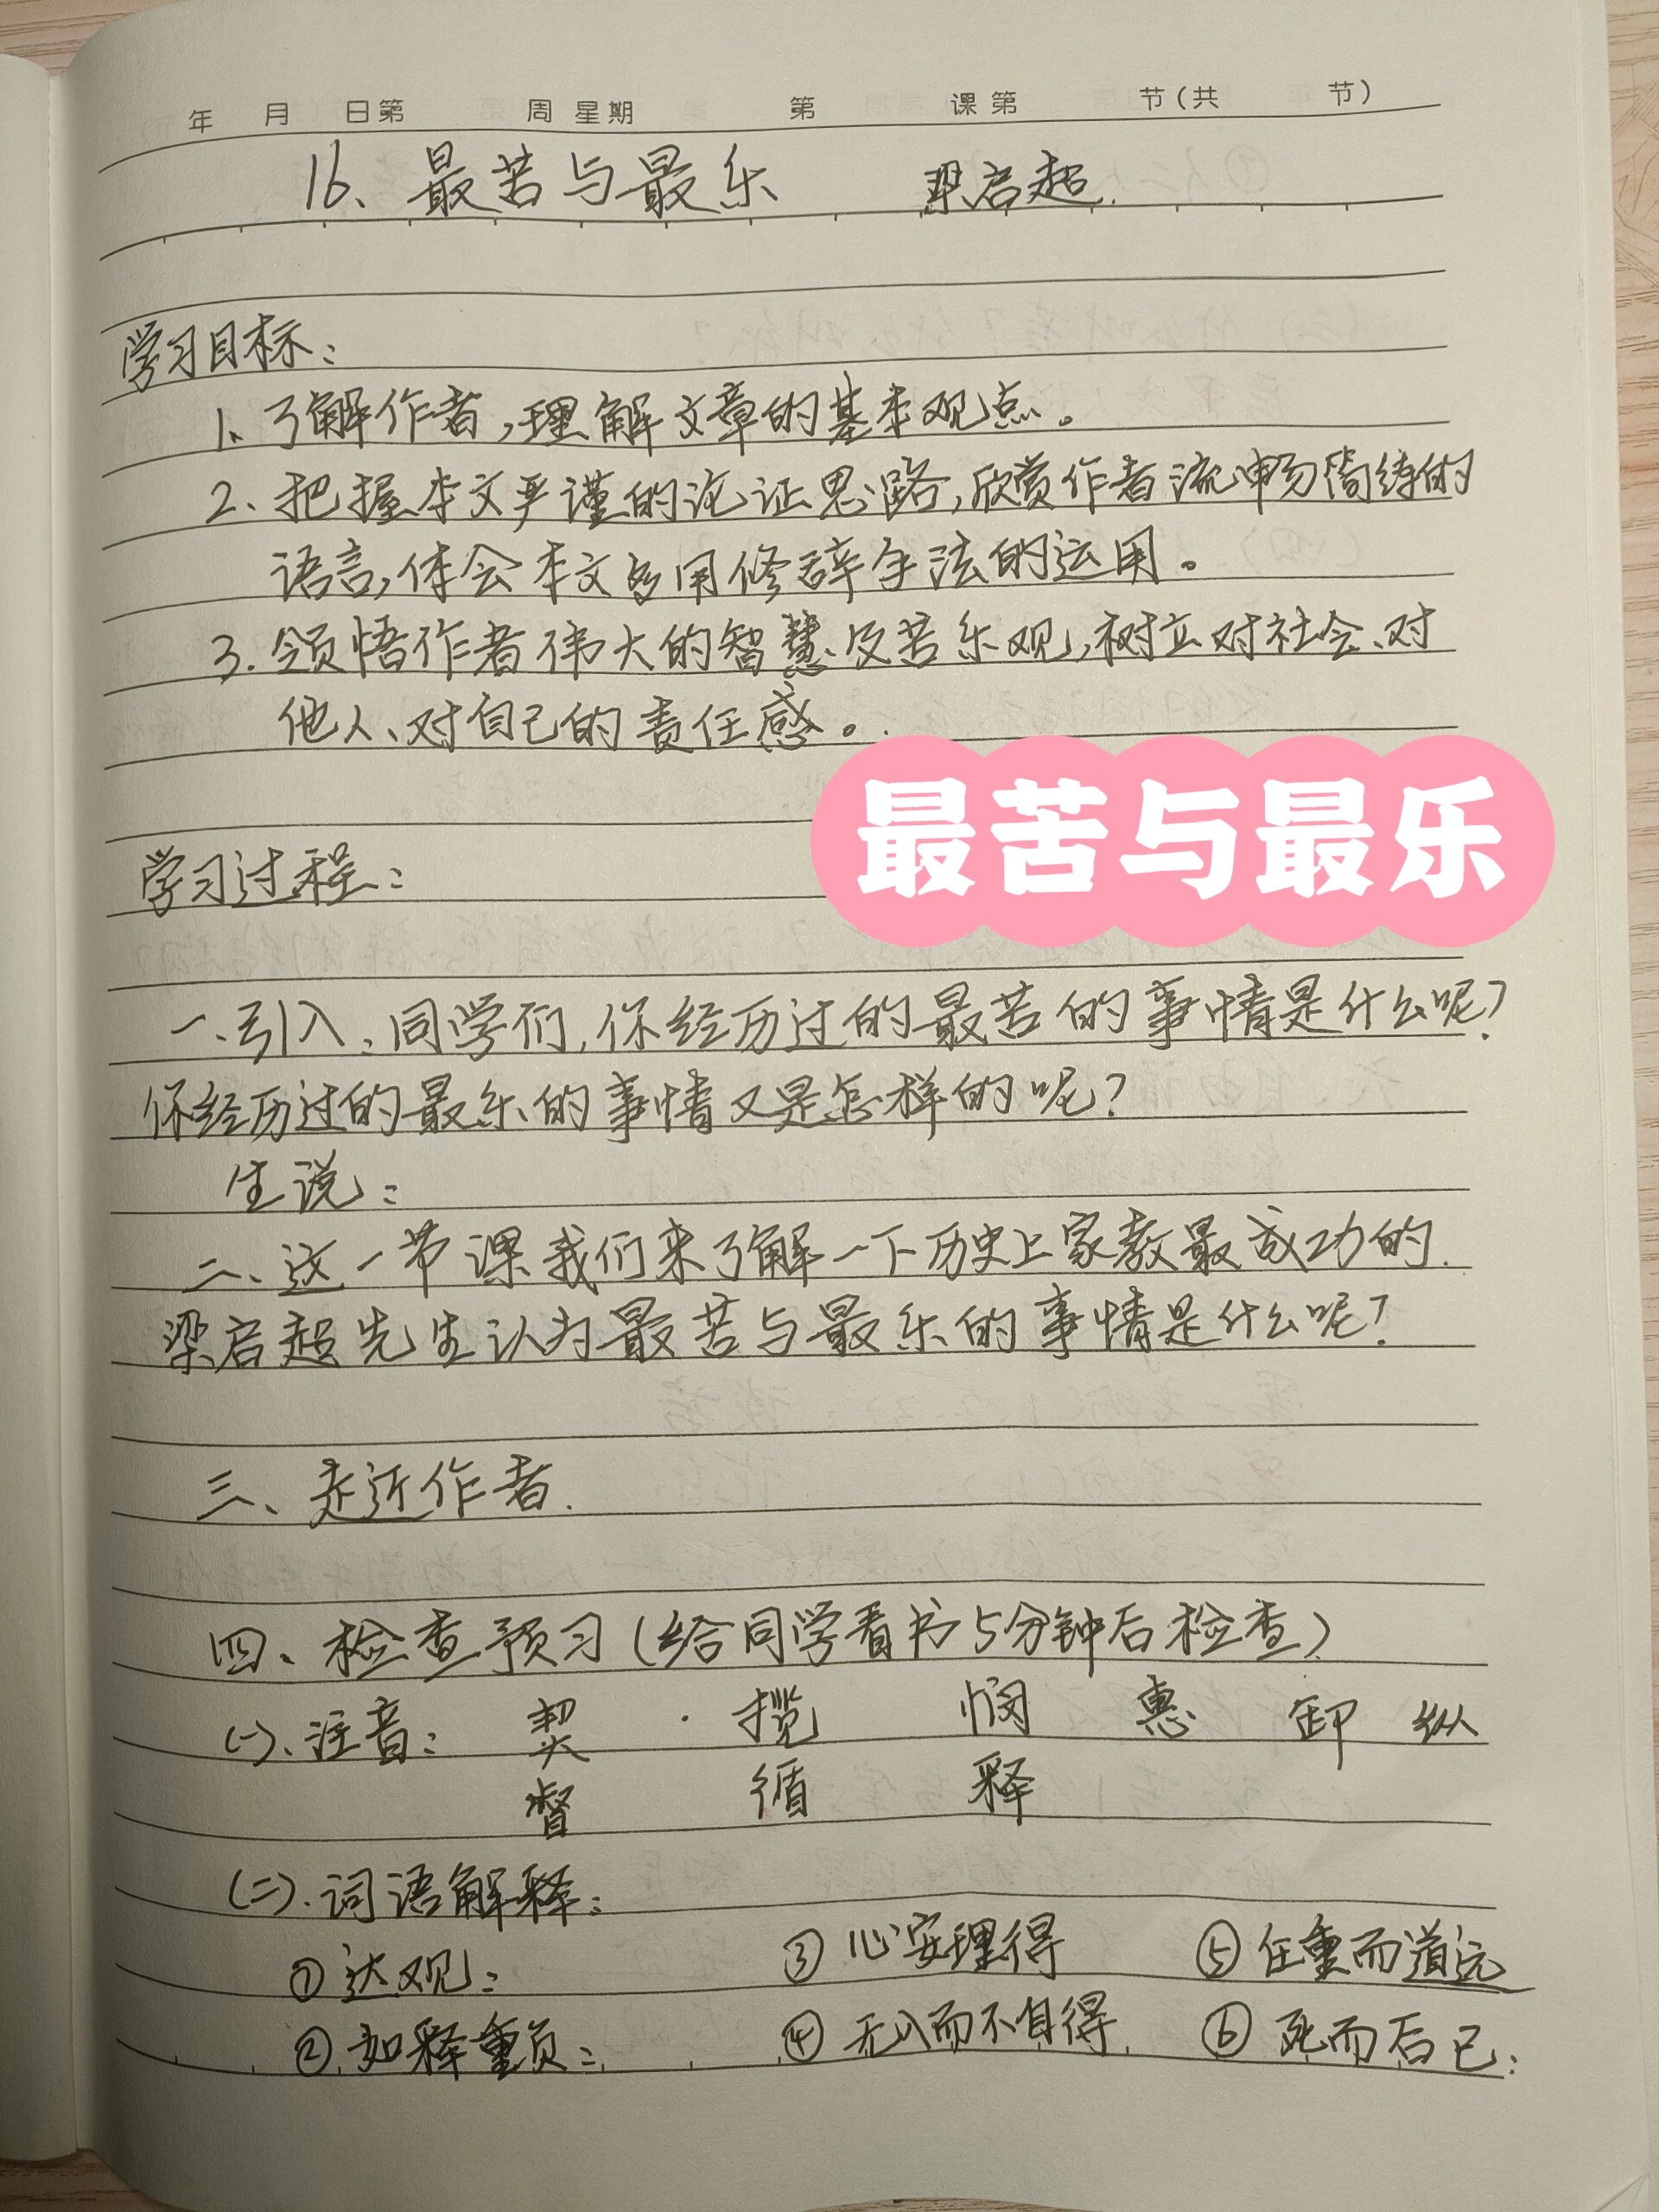 年 月 日第 周 星期 第 课 第 节(共 节)
16、最苦与最乐 梁启超.
学习目标:
1、了解作者,理解文章的基本观点。
2、把握本文严谨的论证思路,欣赏作者流畅简练的
语言,体会本文多用修辞手法的运用。
3.领悟作者伟大的智慧及苦乐观,树立对社会、对
他人、对自己的责任感。
最苦与最乐
学习过程:
一、引入:同学们,你经历过的最苦的事情是什么呢?
你经历过的最乐的事情又是怎样的呢?
生说:
二、这一节课我们来了解一下历史上家教最成功的
梁启超先生认为最苦与最乐的事情是什么呢?
三、走近作者.
四、检查预习(给同学看书5分钟后检查)
(一)、注音: 契 揽 悯 惠 卸 纵
督 循 释
(二).词语解释:
①达观: ③心安理得 ⑤任重而道远
②如释重负: ④无入而不自得 ⑥死而后已: